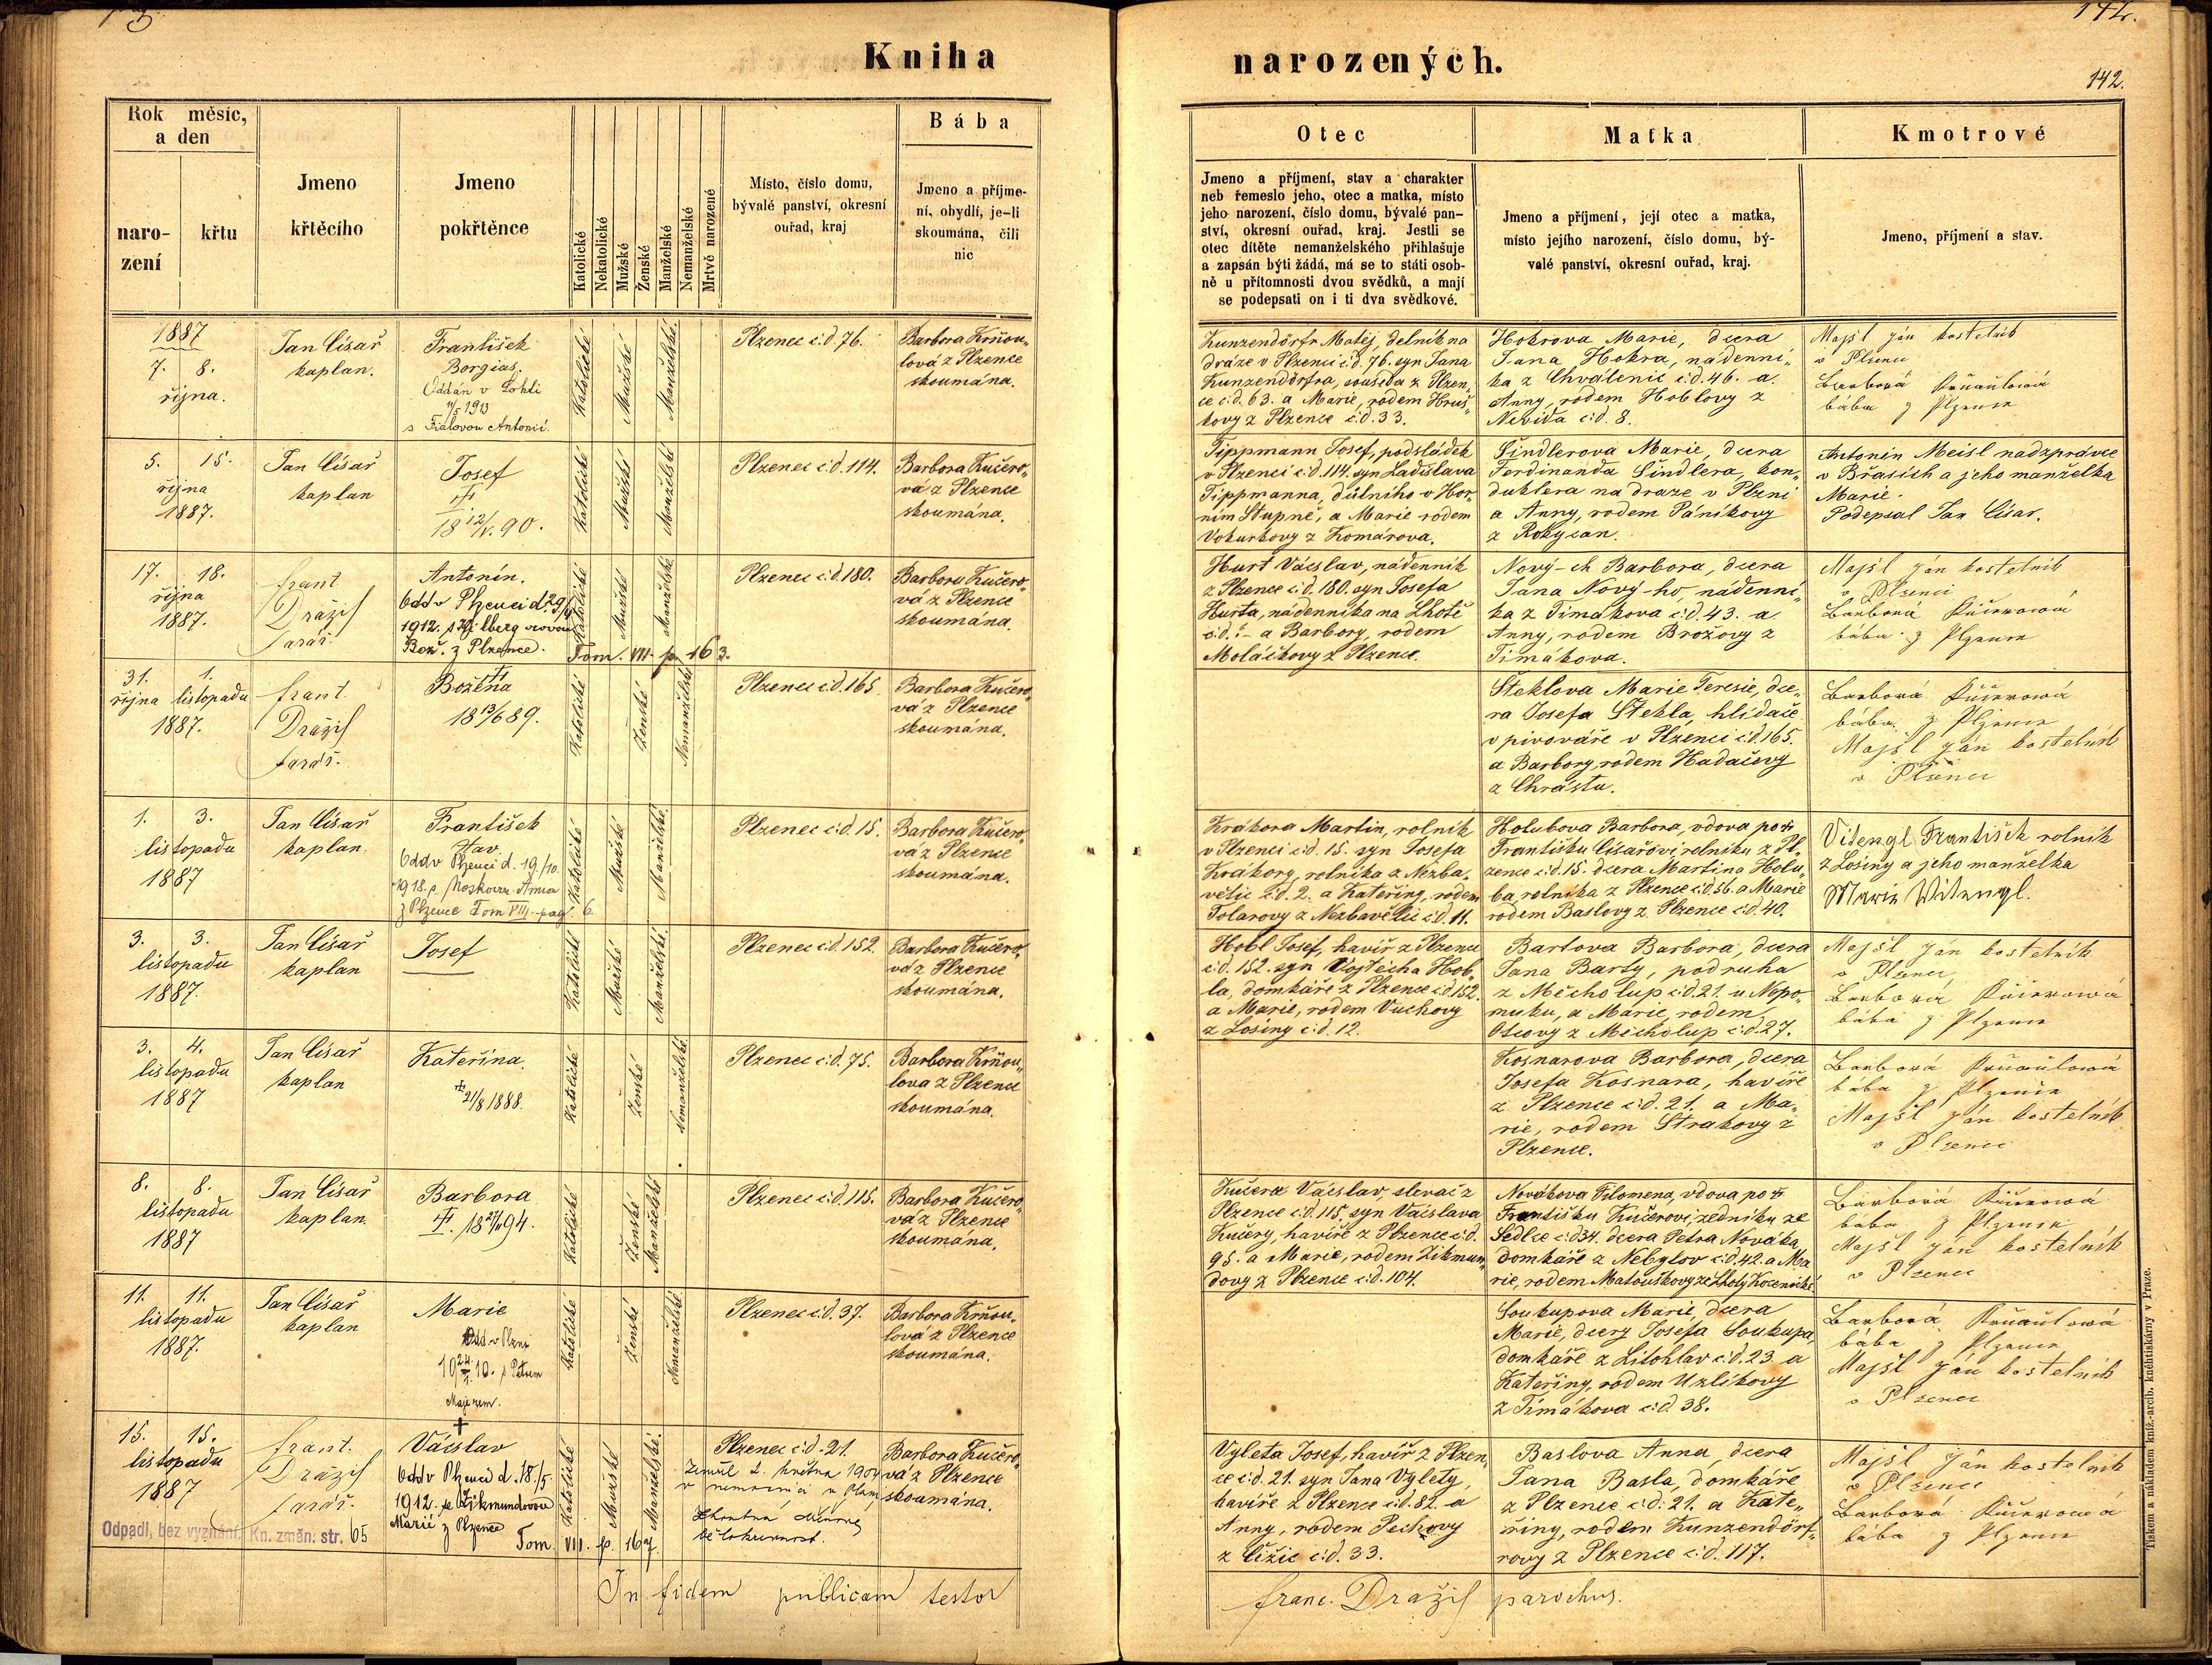 142.
Kniha narozených.
142.
Rok měsíc,
a den
naro-
zení
křtu
Jmeno
křtěcího
Jmeno
pokřtěnce
Katolické
Nekatolické
Mužské
Ženské
Manželské
Nemanželské
Mrtvě narozené
Místo, číslo domu,
bývalé panství, okresní
ouřad, kraj
Bába
Jmeno a příjme-
ní, obydlí, je-li
skoumána, čili
nic
Otec
Jmeno a příjmení, stav a charakter
neb řemeslo jeho, otec a matka, místo
jeho narození, číslo domu, bývalé pan-
ství, okresní ouřad, kraj. Jestli se
otec dítěte nemanželského přihlašuje
a zapsán býti žádá, má se to státi osob-
ně u přítomnosti dvou svědků, a mají
se podepsati on i ti dva svědkové.
Matka
Jmeno a příjmení, její otec a matka,
místo jejího narození, číslo domu, bý-
valé panství, okresní ouřad, kraj.
Kmotrové
Jmeno, příjmení a stav.
1887
7. 8.
října.
Jan Císař
kaplan.
František
Borgias.
Oddán v
11/5 1913
s Fialovou Antonií.
Katolické
Mužské
Manželské.
Plzenec č:d. 76.
Barbora Krňou„
lová z Plzence
skoumána.
Kunzendörfr Matěj, delník na
dráze v Plzenci č.d. 76. syn Jana
Kunzendörfra, souseda z Plzen„
ce č:d. 63. a Marie, rodem Hruš„
kovy z Plzence č:d. 33.
Hokrova Marie, dcera
Jana Hokra, nádenní„
ka z Chválenic č:d. 46. a
Anny, rodem Hoblovy z
č:d. 8.
Majsl ján kostelník
v Plzenci
Barborá Krňaulová
bába z Plzence
5. 15.
října
1887.
Jan Císař
kaplan
Josef
18 12/V. 90.
Katolické
Mužské
Manželské
Plzenec č:d. 114.
Barbora Kučero„
vá z Plzence
skoumána.
Tippmann Josef, podsládek
v Plzenci č:d. 114, syn Ladislava
Tippmanna, důlního v Hor„
ním Stupně, a Marie rodem
Vokurkovy z Komárova.
Šindlerova Marie, dcera
Ferdinanda Šindlera, kon„
duktera na draze v Plzni
a Anny, rodem Páníkovy
z Rokycan.
Antonín Meisl nadzprávce
v Břasích a jeho manželka
Marie.
Podepsal Jan Císař.
17. 18.
října
1887.
Frant
Dražil
farář.
Antonín.
Odd v Plzenci d. 29/
1912. s
Bož. z Plzence. Tom. VII. p. 163.
Katolické
Mužské
Manželské
Plzenec č:d. 180.
Barbora Kučero„
vá z Plzence
skoumána.
Hurt Vácslav, nádenník
z Plzence č:d. 180. syn Josefa
Hurta, nádenníka na Lhotě
č:d. ?- a Barbory, rodem
Moláčkovy z Plzence.
Nový-ch Barbora, dcera
Jana Nový-ho, nádenní„
ka z Timákova č:d. 43. a
Anny, rodem Brožovy z
Timákova.
Majsl ján kostelník
v Plzenci
Barborá Kučerowá
bába z Plzence
31. 1.
října listopadu
1887.
Frant.
Dražil
farář.
Božena
18 13/6 89.
Katolické
Ženské
Nemanželské
Plzenec č:d. 165
Barbora Kučero„
vá z Plzence
skoumána.
Steklova Marie Teresie, dce„
ra Josefa Stekla, hlídače
v pivováře v Plzenci č:d. 165.
a Barbory, rodem Hadačovy
z Chrástu.
Barborá Kučerowá
bába z Plzence
Majsl ján kostelník
v Plzenci
1. 3.
listopadu
1887
Jan Císař
kaplan.
František
Odd v Plzenci d. 19/10.
1918. s
z Plzence Tom VIII. pag. 6.
Katolické
Mužské
Manželské.
Plzenec č:d. 15.
Barbora Kučero„
vá z Plzence
skoumána.
Krákora Martin, rolník
v Plzenci č:d. 15. syn Josefa
Krákory, rolníka z Nezba„
větic č:d. 2. a Kateřiny, rodem
Tolarovy z Nezbavětic č:d. 11.
Holubova Barbora, vdova po
Františku Císařovi rolníku z Pl„
zence č:d. 15. dcera Martina Holu„
ba, rolníka z Plzence č:d. 56. a Marie
rodem Baslovy z Plzence č:d. 40.
Vitengl František rolník
z Losiny a jeho manželka
Marie Witengl.
3. 3.
listopadu
1887.
Jan Císař
kaplan
Josef
Katolické
Mužské
Manželské.
Plzenec č:d. 152.
Barbora Kučero„
vá z Plzence
skoumána.
Hobl Josef, havíř z Plzence
č:d. 152. syn Vojtěcha Hob„
la, domkáře z Plzence č:d. 152.
a Marie, rodem Vuchovy
z Losiny č:d. 12.
Bartova Barbora, dcera
Jana Barty, podruha
z Měcholup č:d. 21. u Nepo„
muku, a Marie, rodem
z Měcholup č:d. 27.
Majsl ján kostelník
v Plzenci,
Barborá Kučerowá
bába z Plzence
3. 4.
listopadu
1887
Jan Císař
kaplan
Kateřina.
21/8 1888.
Katolické
Ženské
Nemanželské
Plzenec č:d. 75.
Barbora Krňou„
lova z Plzence
skoumána.
Kosnarova Barbora, dcera
Josefa Kosnara, havíře
z Plzence č:d. 21. a Ma„
rie, rodem Strakovy z
Plzence.
Barborá Krňaulowá
bába z Plzence
Majsl ján kostelník
v Plzenci
8. 8.
listopadu
1887
Jan Císař
kaplan.
Barbora
Katolické
Ženské
Manželské
Plzenec č:d. 115.
Barbora Kučero„
vá z Plzence
skoumána.
Kučera Vácslav, slevač z
Plzence č:d. 115, syn Vácslava
Kučery, havíře z Plzence č:d.
95. a Marie, rodem Zikmun„
dovy z Plzence č:d. 104.
Nováková Filomena, vdova po
Františku Kučerovi, zedníku ze
Sedlce č:d. 34. dcera Petra Nováka,
domkáře z Nebylov č:d. 42. a Ma
rie, rodem Matouškovy ze Lhoty
Barborá Kučerowá
bába z Plzence
Majsl ján kostelník
v Plzenci
11. 11.
listopadu
1887.
Jan Císař
kaplan
Marie
Odd v Plzni
s Petrem
Majerem.
Katolické
Ženské
Nemanželské
Plzenec č:d. 37.
Barbora Krňou„
lová z Plzence
skoumána.
Soukupova Marie, dcera
Marie, dcery Josefa Soukupa,
domkáře z Litohlav č:d. 23 a
Kateřiny, rodem Uzlíkovy
z Timákova č:d. 38.
Barborá Krňaulowá
bába z Plzence
Majsl ján kostelník
v Plzenci
15. 15.
listopadu
1887
Frant.
Dražil
farář.
Vácslav
Odd v Plzenci d. 18./5
1912. se Zikmundovou
Marií z Plzence Tom. VII. p. 167.
Katolické
Mužské
Manželské.
Plzenec č:d. 21.
Zemřel 2. května
v nemocnici v
Barbora Kučero„
vá z Plzence
skoumána.
Vyleta Josef, havíř z Plzen„
ce č:d. 21. syn Jana Vylety,
havíře z Plzence č:d. 82. a
Anny, rodem Peckovy
z Čižic č:d. 33.
Baslova Anna, dcera
Jana Basla, domkáře
z Plzence č:d. 21. a Kate„
řiny, rodem Kunzendörf„
rovy z Plzence č:d. 117.
Majsl ján kostelník
v Plzenci
Barborá Kučerowá
bába z Plzence
Odpadl, bez vyznání. Kn. změn. str. 65
In fidem publicam testor
Franc. Dražil parochus.
Tiskem a nákladem kníž.-arcib. knihtiskárny v Praze.